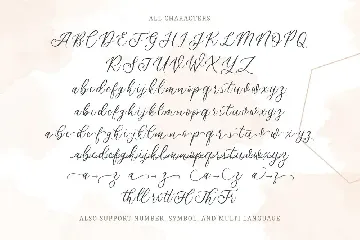 ALL CHARACTERS
ABCDEFGHIJKLMNOPQ
RSTUVWXYZ
abcdefghijklmnopqrstuvwxyz
abcdefghijklmnopqrstuvwxyz
abcdefghijklmnopqrstuvwxyz
abcdefghijklmnopqrstuvwxyz
ALSO SUPPORT NUMBER, SYMBOL, AND MULTI LANGUAGE